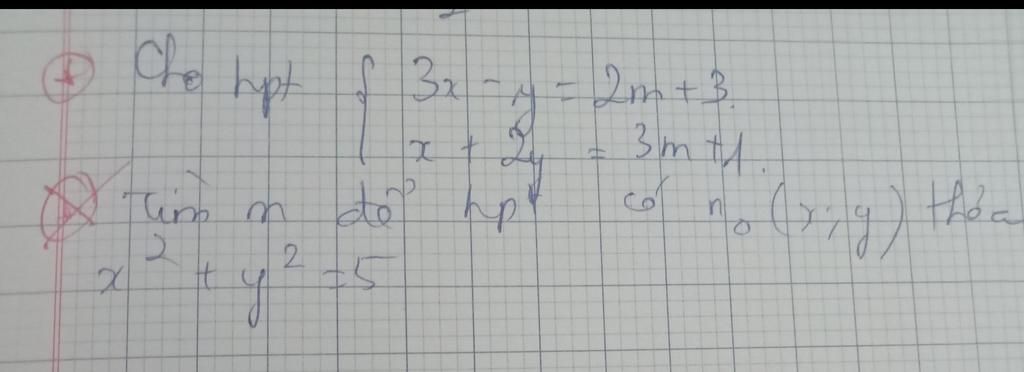 Cho hpt { 3x - y = 2m + 3.
x + 2y = 3m + 1.
Tìm m để hpt có n₀ (x; y) thỏa
x² + y² = 5